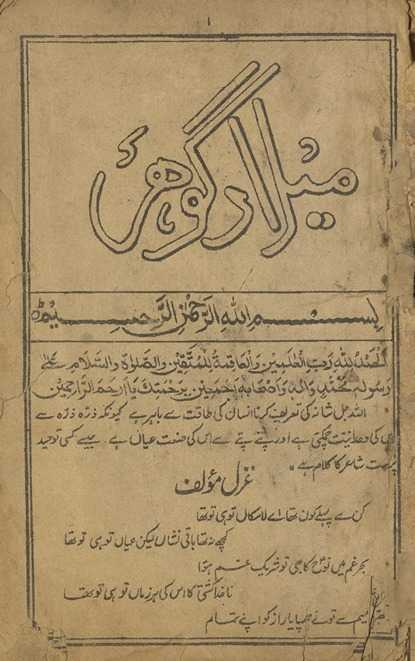 ۱
میلاد گوہر
بسم اللہ الرحمٰن الرحیم
الحمد للہ رب العلمین والعاقبۃ للمتقین والصلوۃ والسلام علی
رسولہ محمد والہ واصحابہ اجمعین برحمتک یا ارحم الراحمین
اللہ جل شانہ کی تعریف کرنا انسان کی طاقت سے باہر ہے کیونکہ ذرہ ذرہ سے
کی وحدانیت چمکتی ہے اور پتے پتے سے اس کی صنعت عیاں ہے۔ جیسے کسی توحید
پرست شاعر کا کلام ہے
غزل مؤلف
کن سے پہلے کون تھا اے لامکاں تو ہی تو تھا
کچھ نہ تھا باقی نشاں لیکن عیاں تو ہی تو تھا
بحر غم میں نوح کا بھی تو شریک غم ہوا
ناخدا کشتی کا اس کی ہر زماں تو ہی تو تھا
میم سے تو نے چھپایا راز کو اپنے تمام